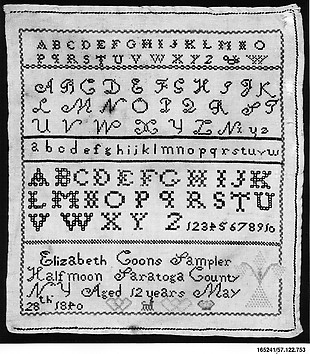 ABCDEFGHIJKLMNO
PQRSTUVWXYZ & W
ABCDEFGHIJK
LMNOPQRST
UVWXYZ No y z
abcdefghijklmnopqrstuvw
ABCDEFGHIJK
LMNOPQRSTU
VWXYZ 12345678910
Elizabeth Coons Sampler
Halfmoon Saratoga County
N Y Aged 12 years May
28th 1840
165241/57.122.753